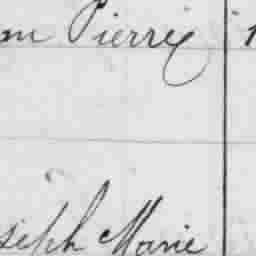 Pierre
seph Marie